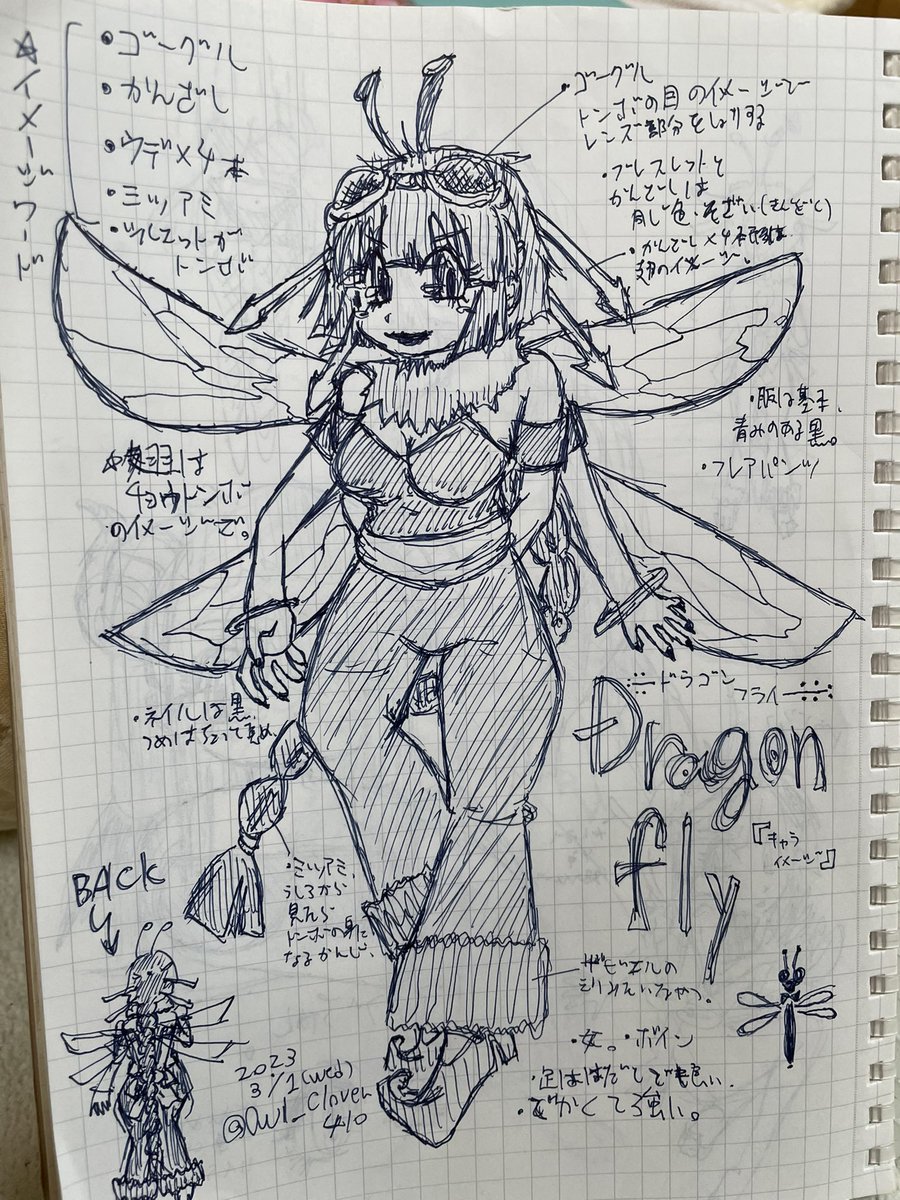 ☆イメージワード
・ゴーグル
・かんざし
・ウデ×4本
・ミツアミ
・シルエットが
トンボ
・ゴーグル
トンボの目のイメージで
レンズ部分を
・ブレスレットと
かんざしは
同じ色・そざい(きんぞく)
・かんざし×4本
翅のイメージ。
・服は基本、
青みのある黒。
・フレアパンツ
翅は
チョウトンボ
のイメージで。
・ネイルは黒
つめはちょっと長め
ドラゴン
フライ
Dragon
fly
『キャラ
イメージ』
・ミツアミ、
うしろから
見たら
トンボの身に
なるかんじ。
BACK
ザビエルの
えりみたいなやつ。
・女。・ボイン
・足ははだしでも良い。
・でかくて強い。
2023
3/1(wed)
@Owl_Clover
410